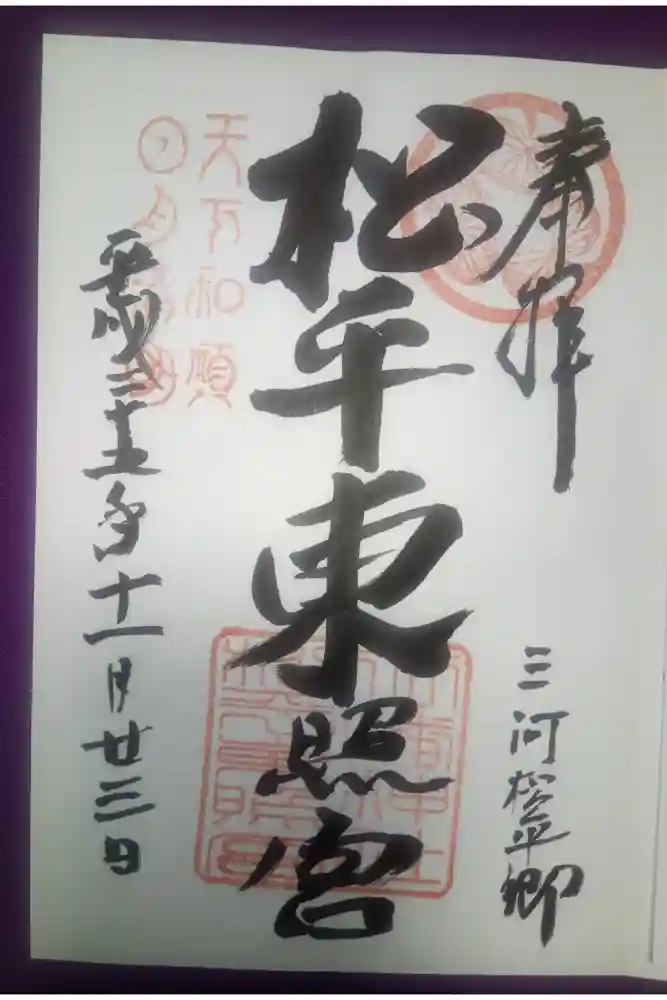 奉拝
三河松平郷
松平東照宮
天下和順
日月清明
平成二十五年十一月廿三日